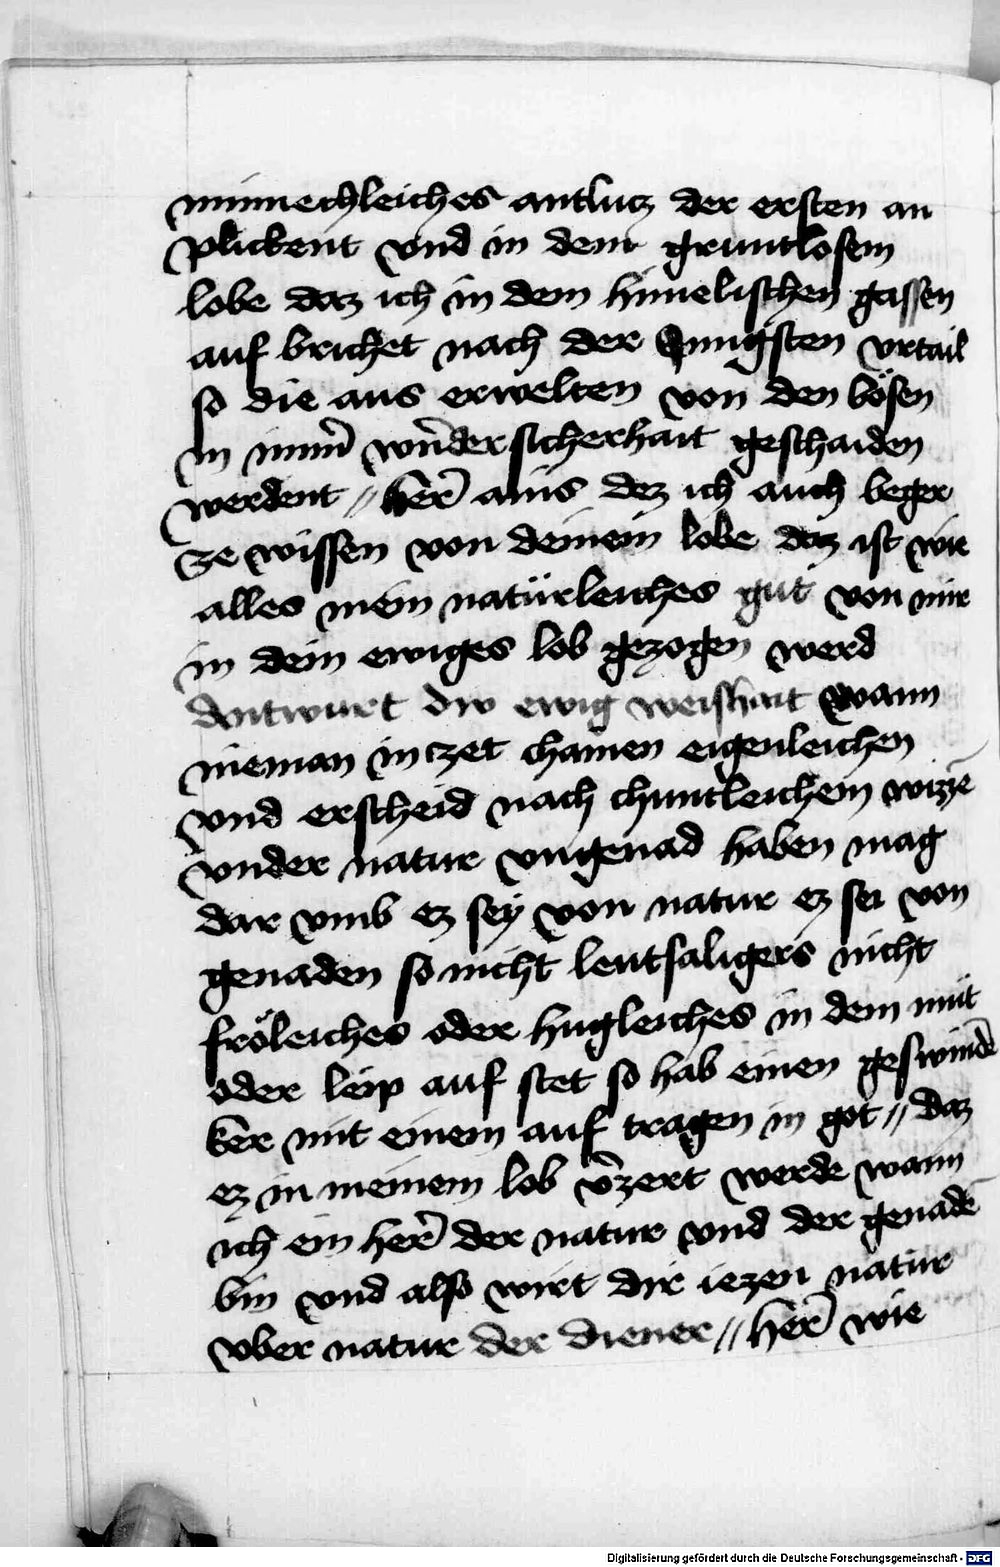 minnechleiches antlucz der ersten an
plickent vnd in dem gruntlosem
lobe daz ich in dem himelischen gassen
auf brichet nach der iungsten vrtail
so die aus erwelten von den bösen
in immer sicherhait geschaiden
werdent // her̄ ains dez ich auch beger
ze wissen von deinem lobe daz ist wie
alles mein natürleiches gut von mir
in dein ewiges lob gezogen werd
Antwurt div ewig weishait wann
nieman in czet chainen eigenleichen
vnd erscheid nach chuntleichem wizzē
vnder natur vngenad haben mag
dar vmb ez sey von natur ez sei von
genaden so nicht leutsaligers nicht
fröleiches oder hugleiches in dem mut
oder leip auf stet so hab einen geswindē
ker mit einem auf tragen in got // daz
ez in meinem lob v̄zert werde wann
ich ein her̄ der natur vnd der genadē
bin vnd also wirt dir iezen natur
vber natur der diener // her̄ wie
Digitalisierung gefördert durch die Deutsche Forschungsgemeinschaft - DFG